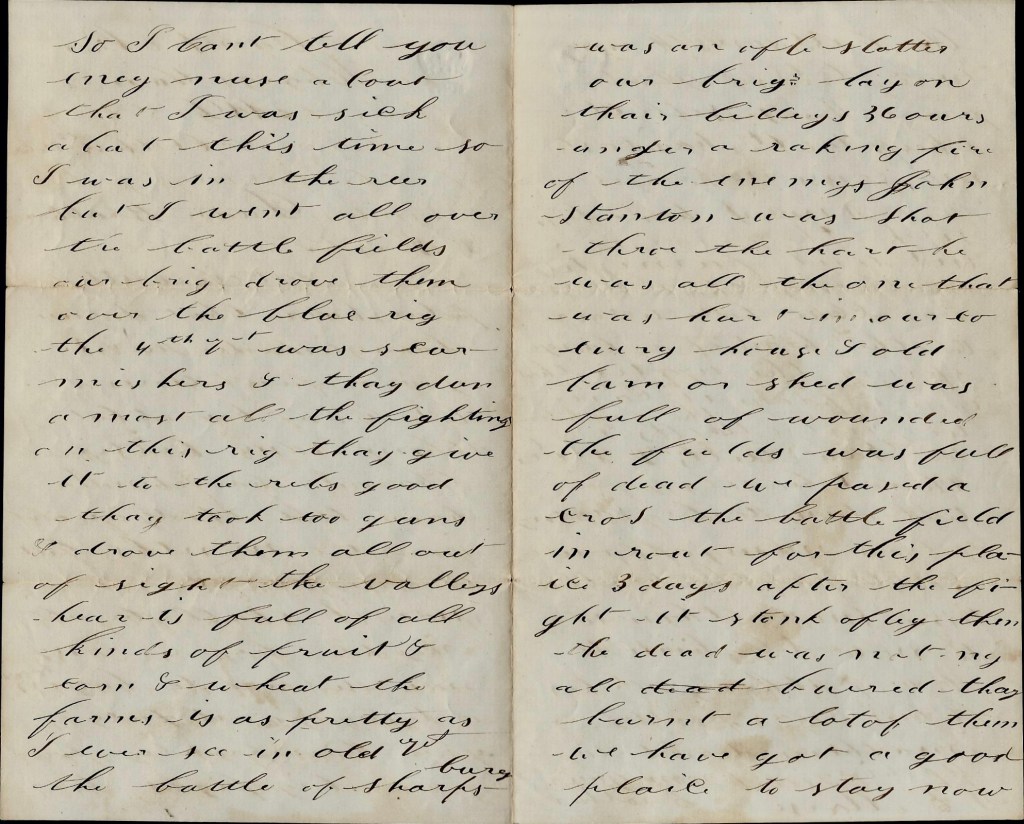 So I Cant tell you
eney nuse a bout
that I was sick
a bat this time so
I was in the reer
but I went all over
the battle fields
our brig. drove them
over the blue rig
the 4th Vt was scar
mishers & thay dun
a most all the fighting
on this rig thay give
it to the rebs good
thay took too guns
& drove them all out
of sight the valleys
hear is full of all
kinds of fruit &
corn & wheat the
farms is as pretty as
I ever see in old yet
the battle of Sharps burg
was an ofle slotter
our brig: lay on
thair billeys 36 ours
under a raking fire
of the enemys John
Stanton was shot
throe the hart he
was all the one that
was hurt in our co
every house & old
barn or shed was
full of wounded
the fields was full
of dead we pased a
cros the battle field
in rout for this pla
ice 3 days after the fi
ght it stank ofley then
the dead was not ny
all dead buired thay
burnt a lot of them
we have got a good
plaice to stay now